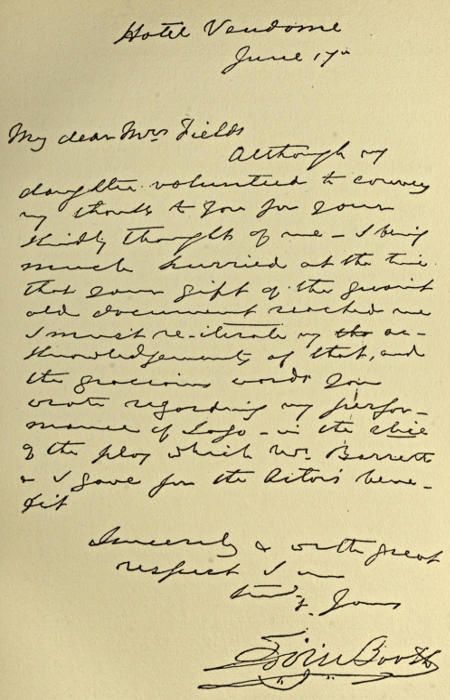 Hotel Vendome
June 17th
My dear Mrs Fields
Although my
daughter volunteered to convey
my thanks to you for your
kindly thought of me – I being
much hurried at the time
that your gift of the quaint
old document reached me
I must re-iterate my the ac-
knowledgements of that, and
the gracious words you
wrote regarding my perfor-
mance of Iago – in the slice
of the play which Mr. Barrett
& I gave for the Actor's bene-
fit
Sincerely & with great
respect I am
Yours
Edwin Booth